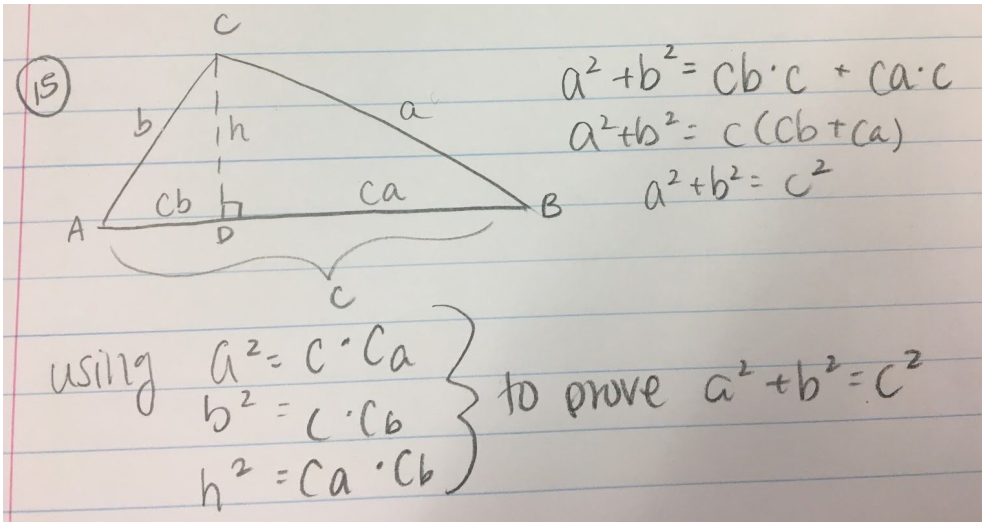 15
C
b
h
a
cb
ca
A
D
B
c
a² + b² = cb · c + ca · c
a² + b² = c (cb + ca)
a² + b² = c²
using a² = c · ca
b² = c · cb
h² = ca · cb
to prove a² + b² = c²